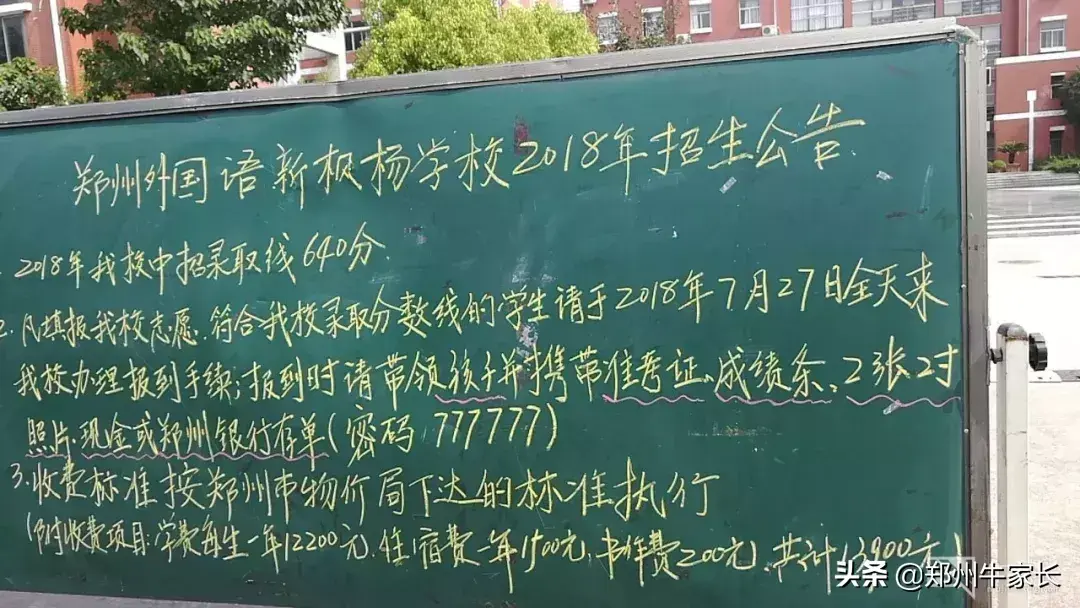 郑州外国语新枫杨学校2018年招生公告
2018年我校中招录取线640分.
2.凡填报我校志愿.符合我校录取分数线的学生请于2018年7月27日全天来
我校办理报到手续;报到时请带领孩子并携带准考证、成绩条、2张2寸
照片.现金或郑州银行存单(密码 777777)
3.收费标准按郑州市物价局下达的标准执行
(附收费项目:学费每生一年12200元.住宿费一年1500元.书作费200元.共计13900元)
头条 @郑州牛家长